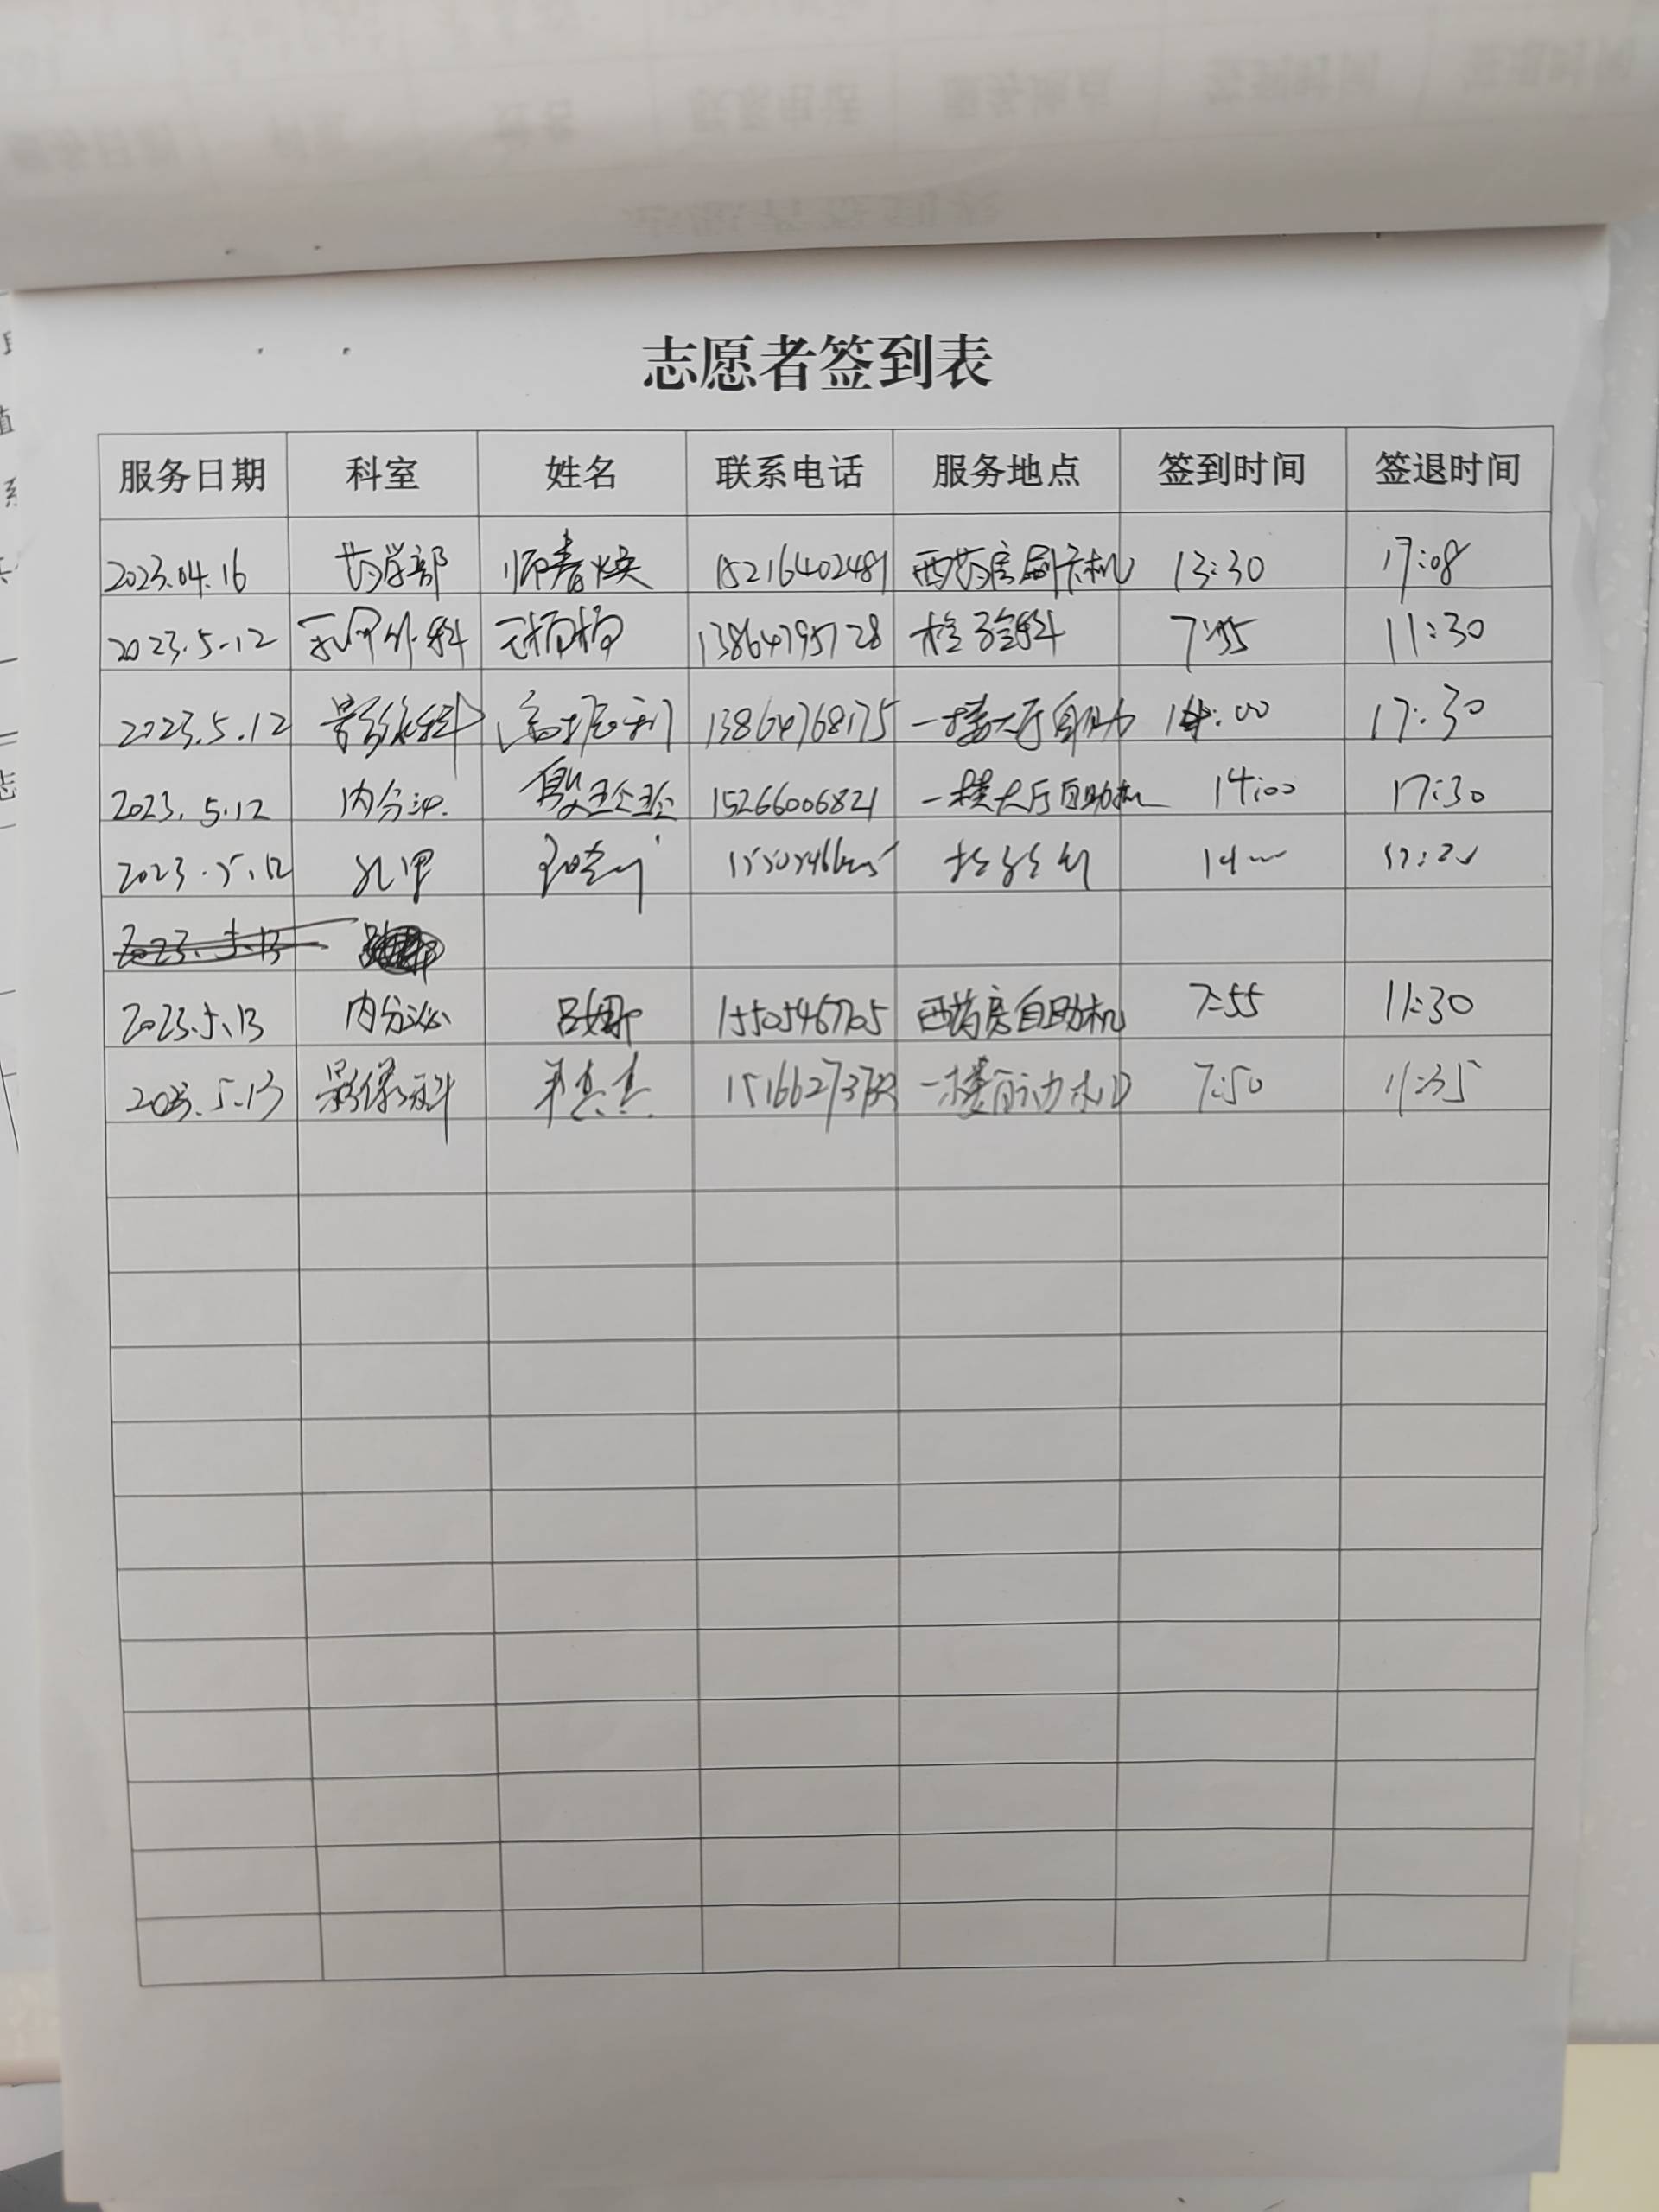 志愿者签到表
服务日期 科室 姓名 联系电话 服务地点 签到时间 签退时间
2023.04.16 药学部 师春焕 15216402481 西药房刷卡机 13:30 17:08
2023.5.12 乳甲外科 13864795728 检验科 7:55 11:30
2023.5.12 影像科 高振利 13864768175 一楼大厅自助 14:00 17:30
2023.5.12 内分泌 15266006821 一楼大厅自助机 14:00 17:30
2023.5.12 乳甲
2023.5.13
2023.5.13 内分泌 吕娜 1550546705 西药房自助机 7:55 11:30
2023.5.13 影像科 一楼自动机 7:50 11:35